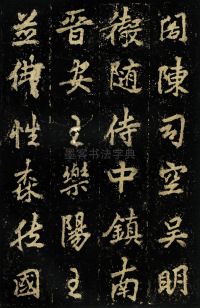 陳司空吳明
徹随侍中鎮南
晉安王樂陽王
並佛性森國
墨客书法字典